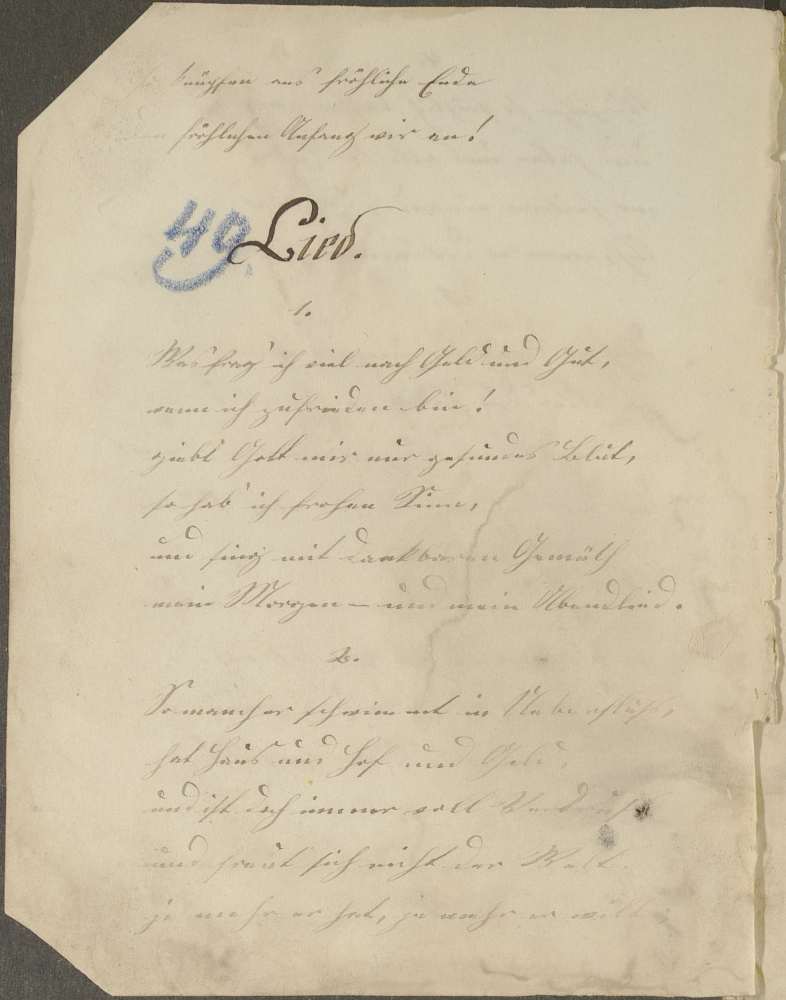 knüpfen ans fröhliche Ende
fröhlichen Anfang wir an!
49. Lied.
1.
Was frag' ich viel nach Geld und Gut,
wenn ich zufrieden bin!
giebt Gott mir nur gesundes Blut,
so hab' ich frohen Sinn,
und sing' mit dankbarem Gemüth
mein Morgen- und mein Abendlied.
2.
So mancher schwimmt in Ueberfluß,
hat Haus und Hof und Geld,
und ist doch immer voll Verdruß
und freut sich nicht der Welt.
je mehr er hat, je mehr er will